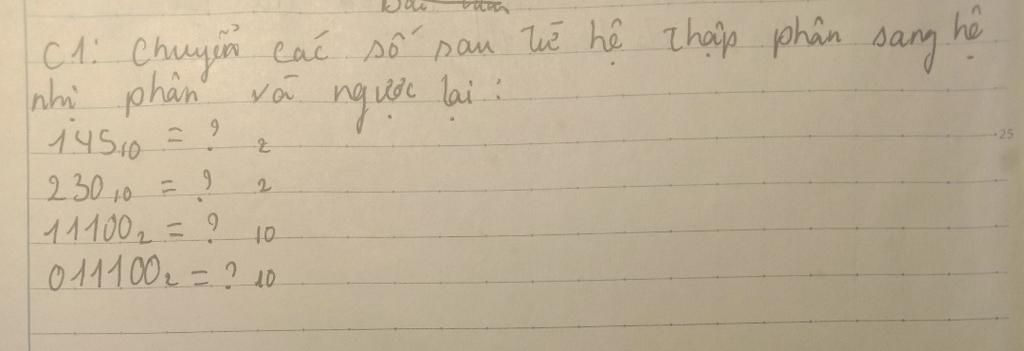 C1: Chuyển các số sau từ hệ thập phân sang hệ
nhị phân và ngược lại:
145₁₀ = ? ₂
25
230₁₀ = ? ₂
11100₂ = ? ₁₀
011100₂ = ? ₁₀